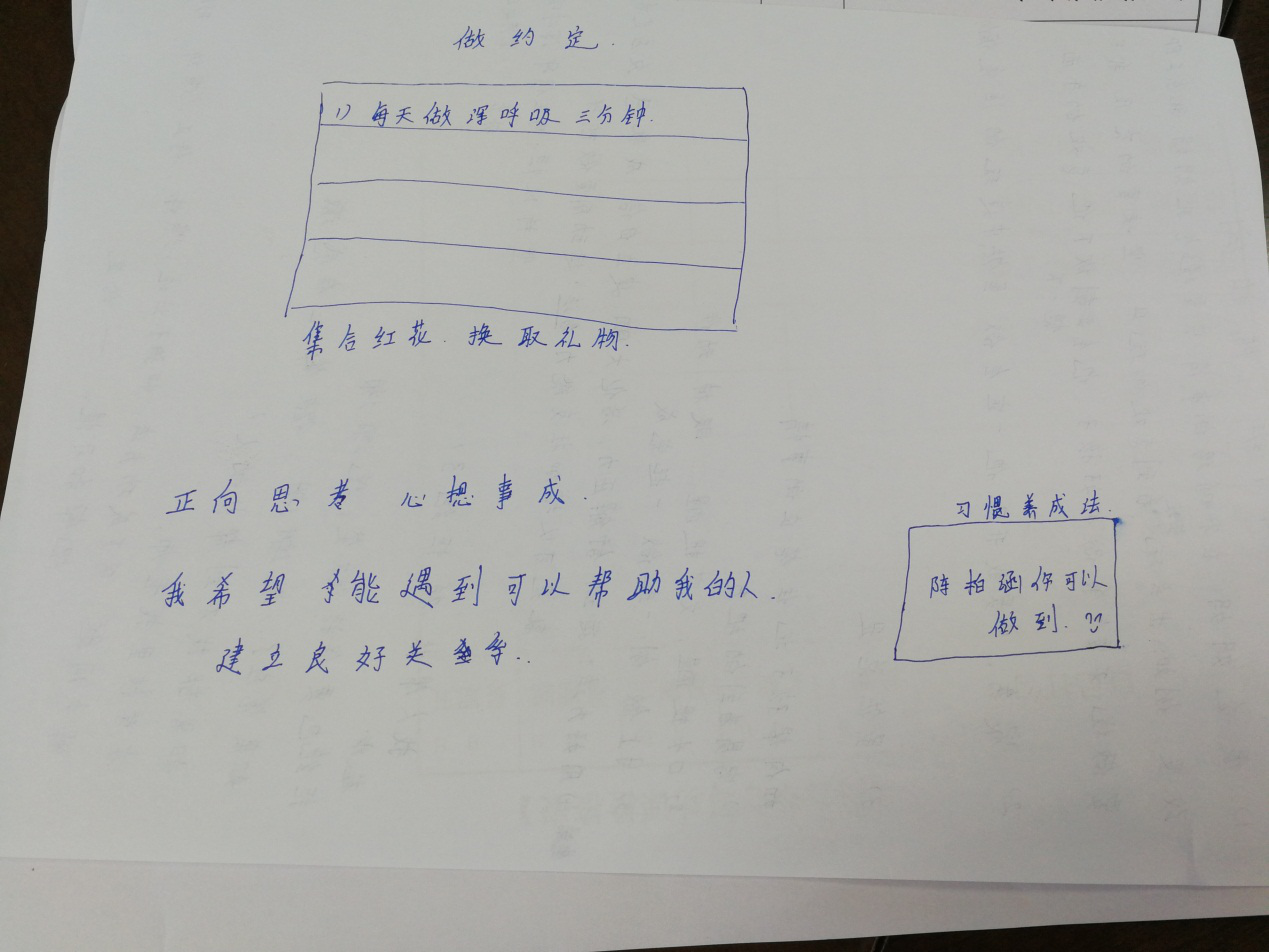 做约定.
1) 每天做深呼吸三分钟.
集合红花.换取礼物.
正向思考 心想事成.
我希望能遇到可以帮助我的人.
建立良好关系..
习惯养成法.
陈柏涵你可以
做到.